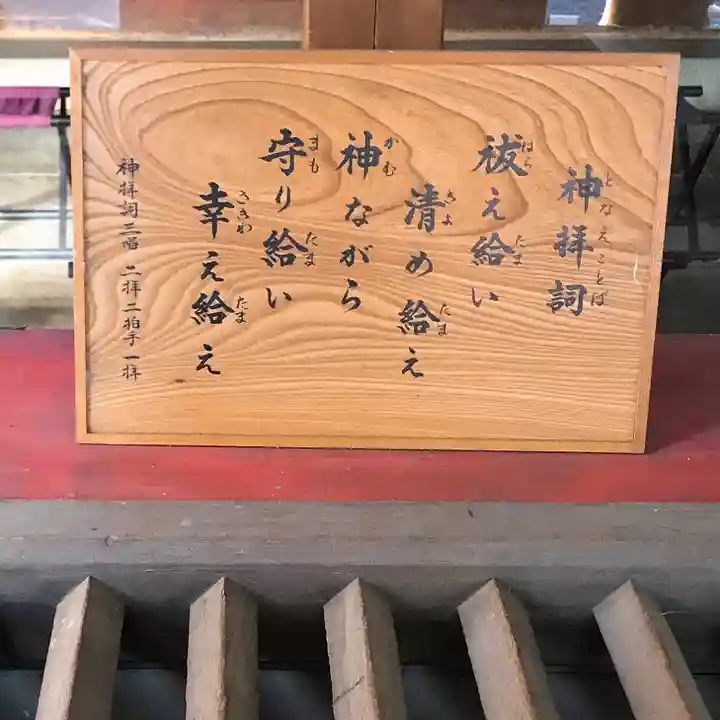 神拝詞
となえことば
祓え給い
はら たま
清め給え
きよ たま
神ながら
かむ
守り給い
まも たま
幸え給え
さきわ たま
神拝詞三唱 二拝二拍手一拝